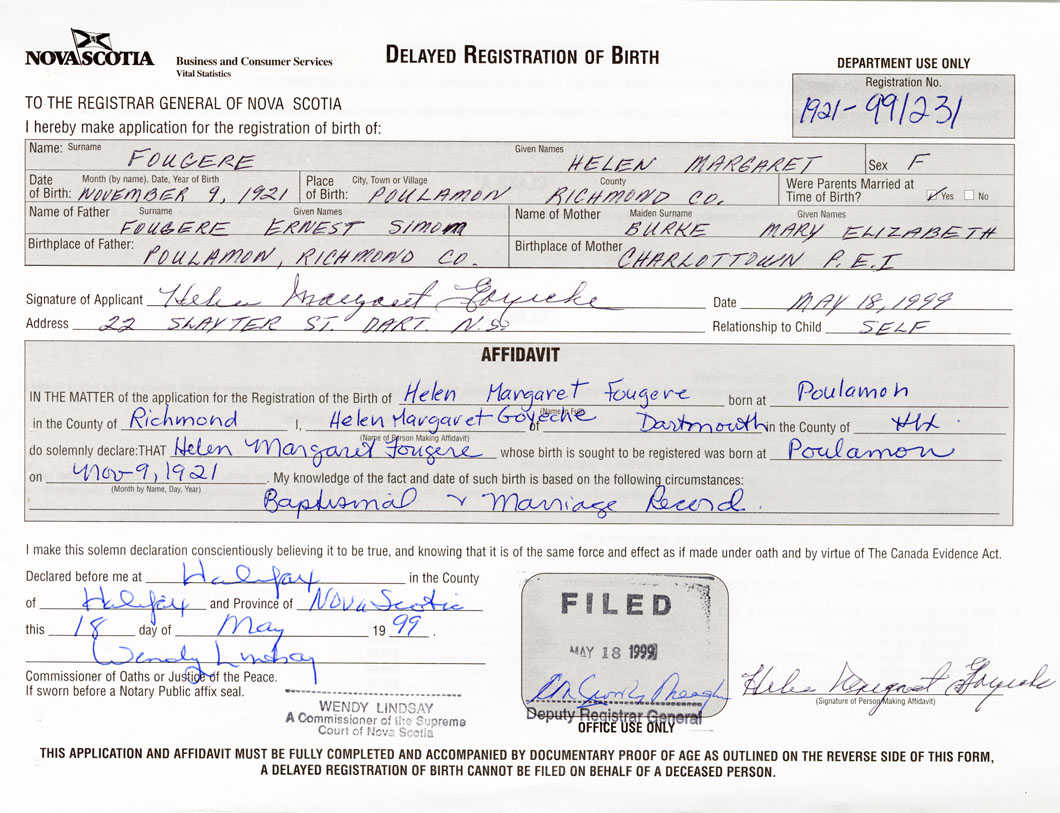 NOVA SCOTIA
Business and Consumer Services
Vital Statistics
DELAYED REGISTRATION OF BIRTH
DEPARTMENT USE ONLY
Registration No.
1921-99/231
TO THE REGISTRAR GENERAL OF NOVA SCOTIA
I hereby make application for the registration of birth of:
Name: Surname FOUGERE Given Names HELEN MARGARET Sex F
Date of Birth: Month (by name), Date, Year of Birth NOVEMBER 9, 1921 Place of Birth: City, Town or Village POULAMON County RICHMOND CO. Were Parents Married at Time of Birth? Yes No
Name of Father Surname FOUGERE Given Names ERNEST SIMOM Name of Mother Maiden Surname BURKE Given Names MARY ELIZABETH
Birthplace of Father: POULAMON, RICHMOND CO. Birthplace of Mother CHARLOTTOWN P.E.I
Signature of Applicant Helen Margaret Goyeche Date MAY 18, 1999
Address 22 SLAYTER ST. DART. N.S. Relationship to Child SELF
AFFIDAVIT
IN THE MATTER of the application for the Registration of the Birth of Helen Margaret Fougere born at Poulamon
(Name in Full)
in the County of Richmond I, Helen Margaret Goyeche of Dartmouth in the County of HX.
(Name of Person Making Affidavit)
do solemnly declare:THAT Helen Margaret Fougere whose birth is sought to be registered was born at Poulamon
on Nov-9, 1921. My knowledge of the fact and date of such birth is based on the following circumstances:
(Month by Name, Day, Year)
Baptismal & Marriage Record.
I make this solemn declaration conscientiously believing it to be true, and knowing that it is of the same force and effect as if made under oath and by virtue of The Canada Evidence Act.
Declared before me at Halifax in the County
of Halifax and Province of Nova Scotia
this 18 day of May 1999.
Wendy Lindsay
Commissioner of Oaths or Justice of the Peace.
If sworn before a Notary Public affix seal.
WENDY LINDSAY
A Commissioner of the Supreme
Court of Nova Scotia
FILED
MAY 18 1999
Deputy Registrar General
OFFICE USE ONLY
Helen Margaret Goyeche
(Signature of Person Making Affidavit)
THIS APPLICATION AND AFFIDAVIT MUST BE FULLY COMPLETED AND ACCOMPANIED BY DOCUMENTARY PROOF OF AGE AS OUTLINED ON THE REVERSE SIDE OF THIS FORM,
A DELAYED REGISTRATION OF BIRTH CANNOT BE FILED ON BEHALF OF A DECEASED PERSON.